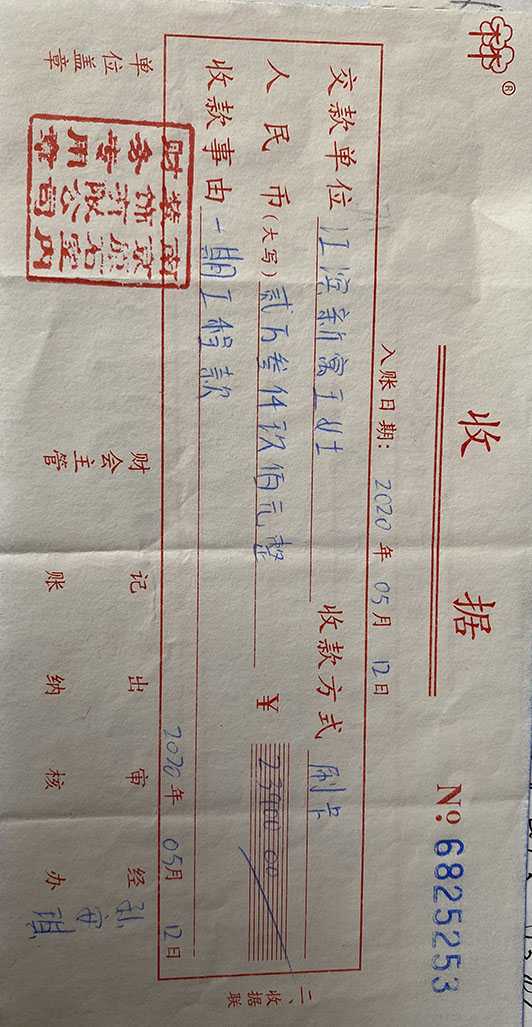 ®
收 据
№ 6825253
入账日期: 2020 年 05 月 12 日
交款单位 江滨新寓王女士 收款方式 刷卡
人民币(大写) 贰万叁仟玖佰元整 ¥ 23900.00
收款事由 一期工程款
2020 年 05 月 12 日
二、收据联
单位盖章 财会主管 记账 出纳 审核 经办
财务专用章